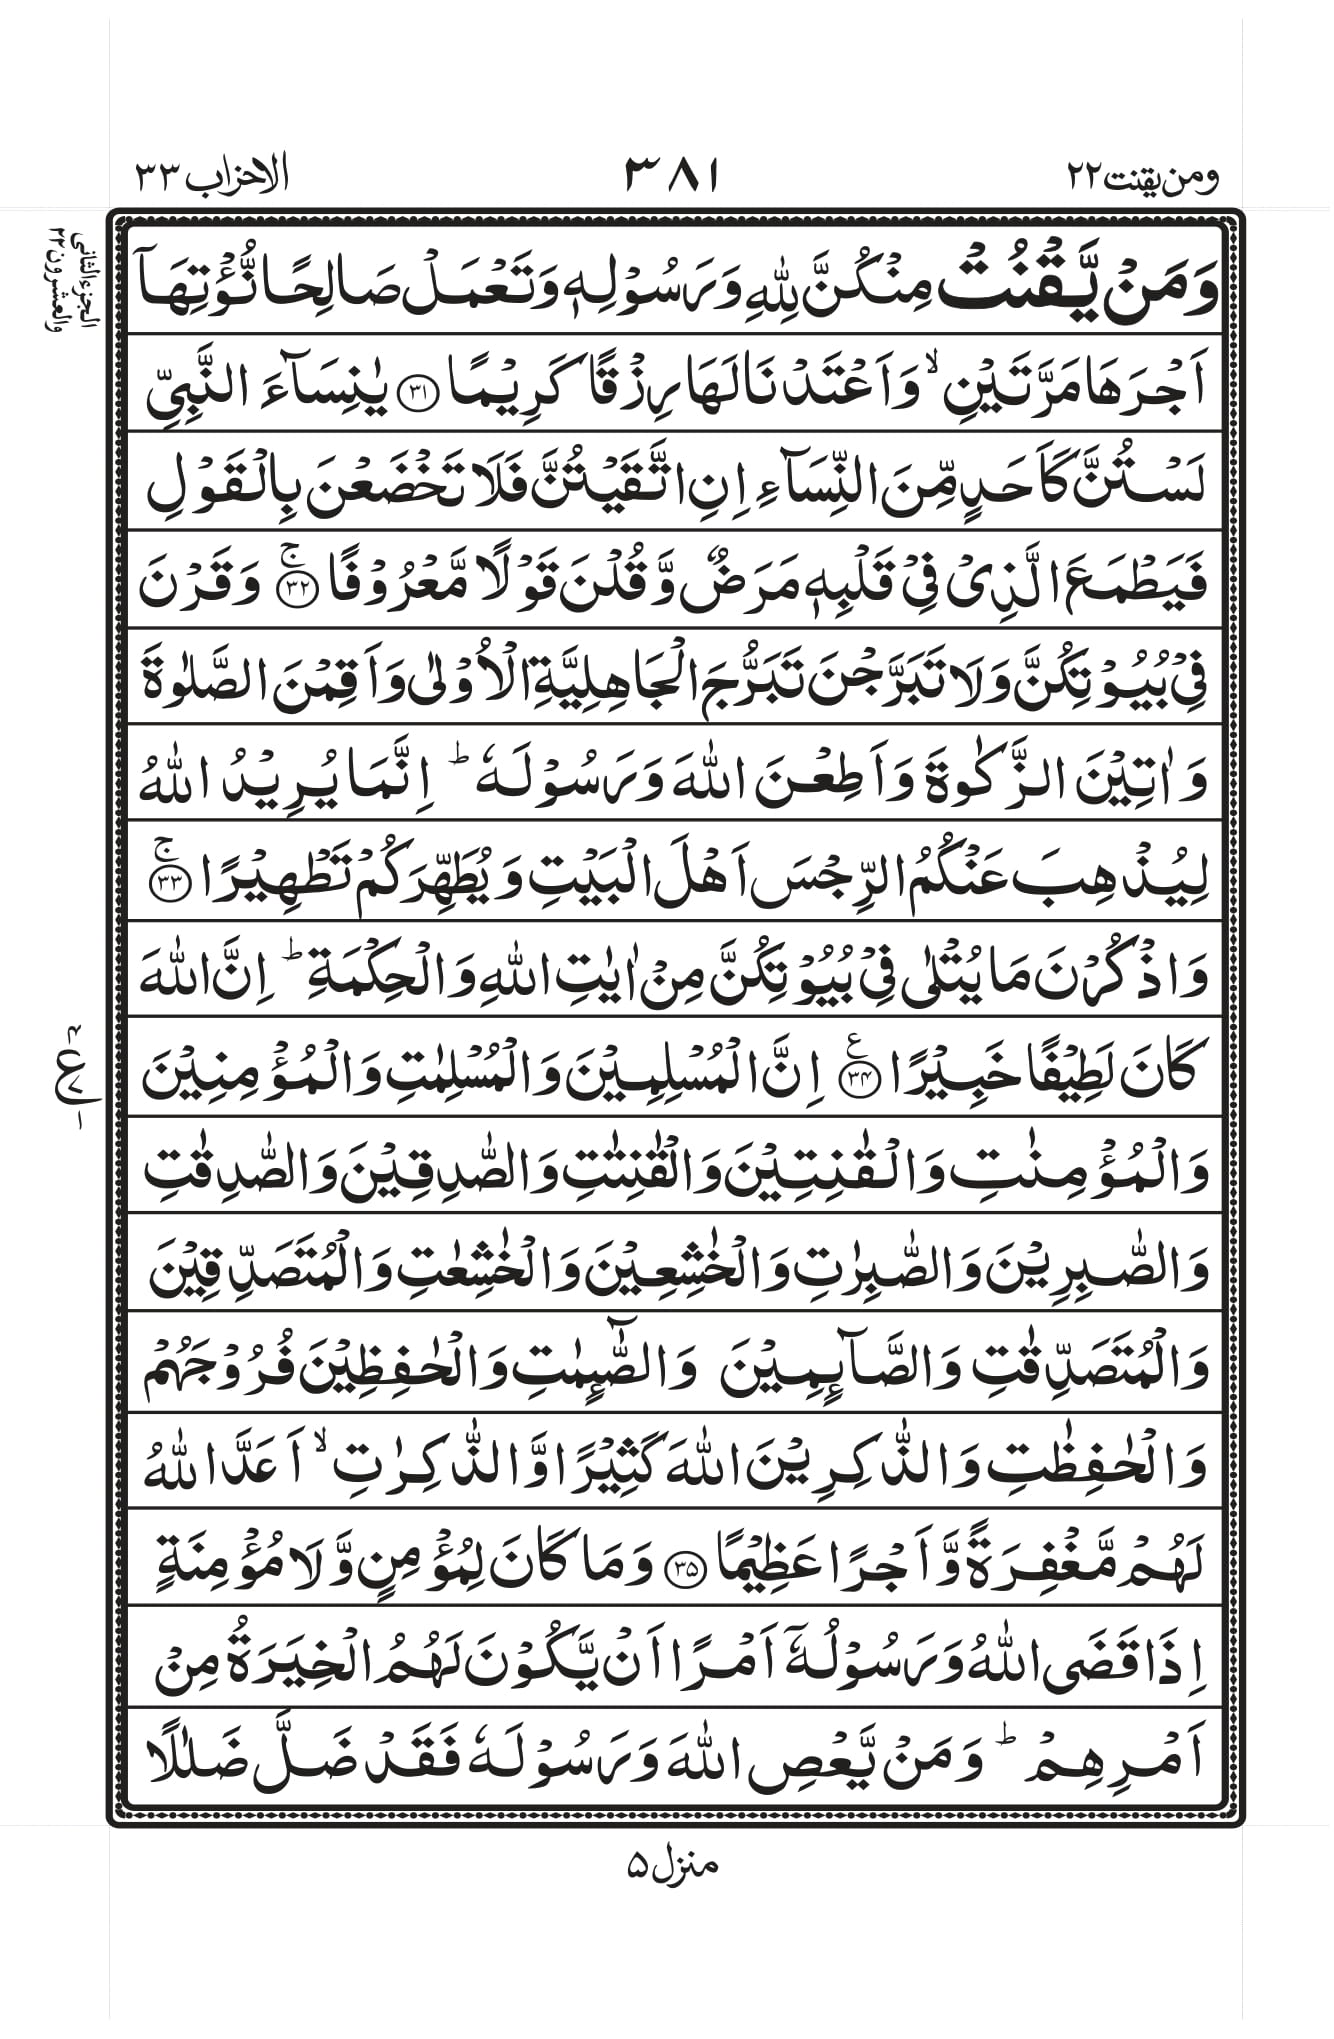 ومن یقنت ۲۲
۳۸۱
الاحزاب ۳۳
الجزء الثانی
والعشرون ۲۲
وَمَنْ یَّقْنُتْ مِنْكُنَّ لِلّٰهِ وَرَسُوْلِهٖ وَتَعْمَلْ صَالِحًا نُّؤْتِهَاۤ
اَجْرَهَا مَرَّتَیْنِ ۙ وَاَعْتَدْنَا لَهَا رِزْقًا كَرِیْمًا ﴿۳۱﴾ یٰنِسَآءَ النَّبِیِّ
لَسْتُنَّ كَاَحَدٍ مِّنَ النِّسَآءِ اِنِ اتَّقَیْتُنَّ فَلَا تَخْضَعْنَ بِالْقَوْلِ
فَیَطْمَعَ الَّذِیْ فِیْ قَلْبِهٖ مَرَضٌ وَّقُلْنَ قَوْلًا مَّعْرُوْفًا ﴿۳۲﴾ ۚ وَقَرْنَ
فِیْ بُیُوْتِكُنَّ وَلَا تَبَرَّجْنَ تَبَرُّجَ الْجَاهِلِیَّةِ الْاُوْلٰی وَاَقِمْنَ الصَّلٰوةَ
وَاٰتِیْنَ الزَّكٰوةَ وَاَطِعْنَ اللّٰهَ وَرَسُوْلَهٗ ؕ اِنَّمَا یُرِیْدُ اللّٰهُ
لِیُذْهِبَ عَنْكُمُ الرِّجْسَ اَهْلَ الْبَیْتِ وَیُطَهِّرَكُمْ تَطْهِیْرًا ﴿۳۳﴾ ۚ
وَاذْكُرْنَ مَا یُتْلٰی فِیْ بُیُوْتِكُنَّ مِنْ اٰیٰتِ اللّٰهِ وَالْحِكْمَةِ ؕ اِنَّ اللّٰهَ
كَانَ لَطِیْفًا خَبِیْرًا ﴿۳۴﴾ ع اِنَّ الْمُسْلِمِیْنَ وَالْمُسْلِمٰتِ وَالْمُؤْمِنِیْنَ
وَالْمُؤْمِنٰتِ وَالْقٰنِتِیْنَ وَالْقٰنِتٰتِ وَالصّٰدِقِیْنَ وَالصّٰدِقٰتِ
وَالصّٰبِرِیْنَ وَالصّٰبِرٰتِ وَالْخٰشِعِیْنَ وَالْخٰشِعٰتِ وَالْمُتَصَدِّقِیْنَ
وَالْمُتَصَدِّقٰتِ وَالصَّآىِٕمِیْنَ وَالصّٰٓىِٕمٰتِ وَالْحٰفِظِیْنَ فُرُوْجَهُمْ
وَالْحٰفِظٰتِ وَالذّٰكِرِیْنَ اللّٰهَ كَثِیْرًا وَّالذّٰكِرٰتِ ۙ اَعَدَّ اللّٰهُ
لَهُمْ مَّغْفِرَةً وَّاَجْرًا عَظِیْمًا ﴿۳۵﴾ وَمَا كَانَ لِمُؤْمِنٍ وَّلَا مُؤْمِنَةٍ
اِذَا قَضَی اللّٰهُ وَرَسُوْلُهٗۤ اَمْرًا اَنْ یَّكُوْنَ لَهُمُ الْخِیَرَةُ مِنْ
اَمْرِهِمْ ؕ وَمَنْ یَّعْصِ اللّٰهَ وَرَسُوْلَهٗ فَقَدْ ضَلَّ ضَلٰلًا
ع
منزل ۵